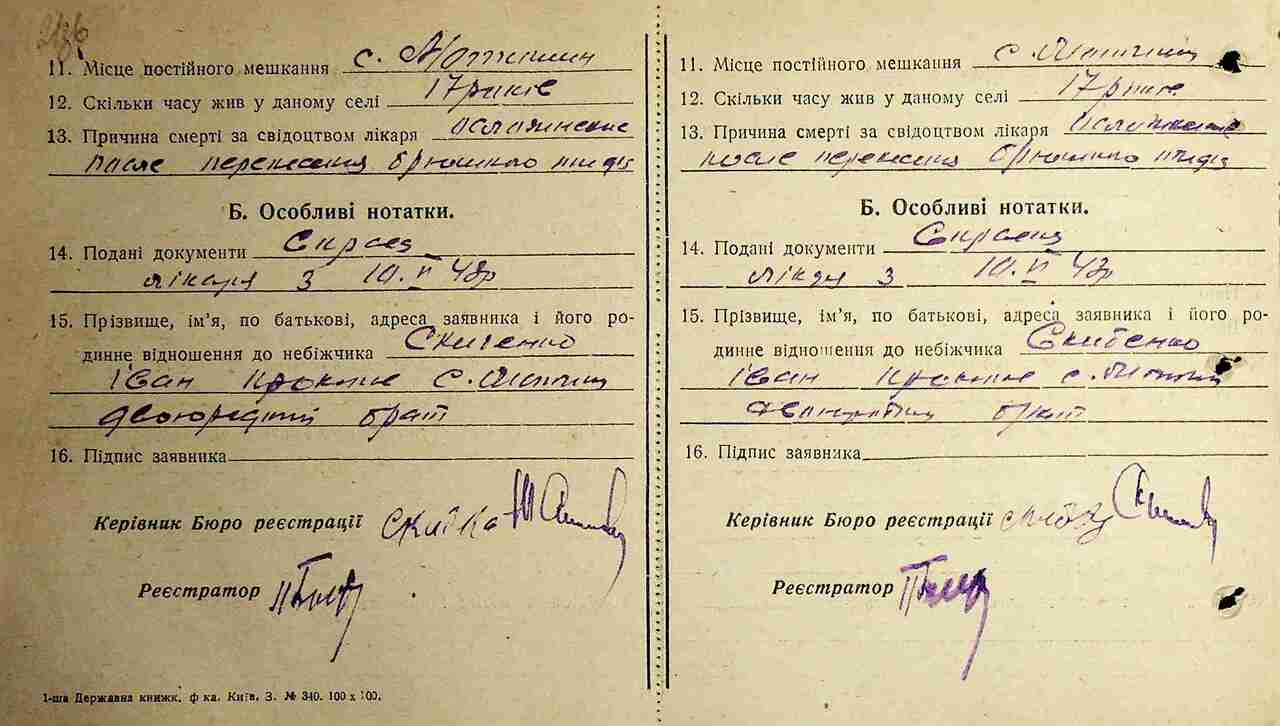 11. Місце постійного мешкання с. Мотижин
12. Скільки часу жив у даному селі 17 років
13. Причина смерті за свідоцтвом лікаря
после перенесен брюшного тифа
Б. Особливі нотатки.
14. Подані документи Справка
лікаря з 10. VI 43р
15. Прізвище, ім’я, по батькові, адреса заявника і його ро-
динне відношення до небіжчика
Іван с.
двоюродний брат
16. Підпис заявника
Керівник Бюро реєстрації
Реєстратор
1-ша Державна книжк. ф-ка. Київ. З. № 340. 100 х 100.
11. Місце постійного мешкання с.
12. Скільки часу жив у даному селі 17 років
13. Причина смерті за свідоцтвом лікаря
после перенесен брюшного тифа
Б. Особливі нотатки.
14. Подані документи Справка
лікаря з 10. VI 43р
15. Прізвище, ім’я, по батькові, адреса заявника і його ро-
динне відношення до небіжчика Скибенко
Іван с.
брат
16. Підпис заявника
Керівник Бюро реєстрації
Реєстратор